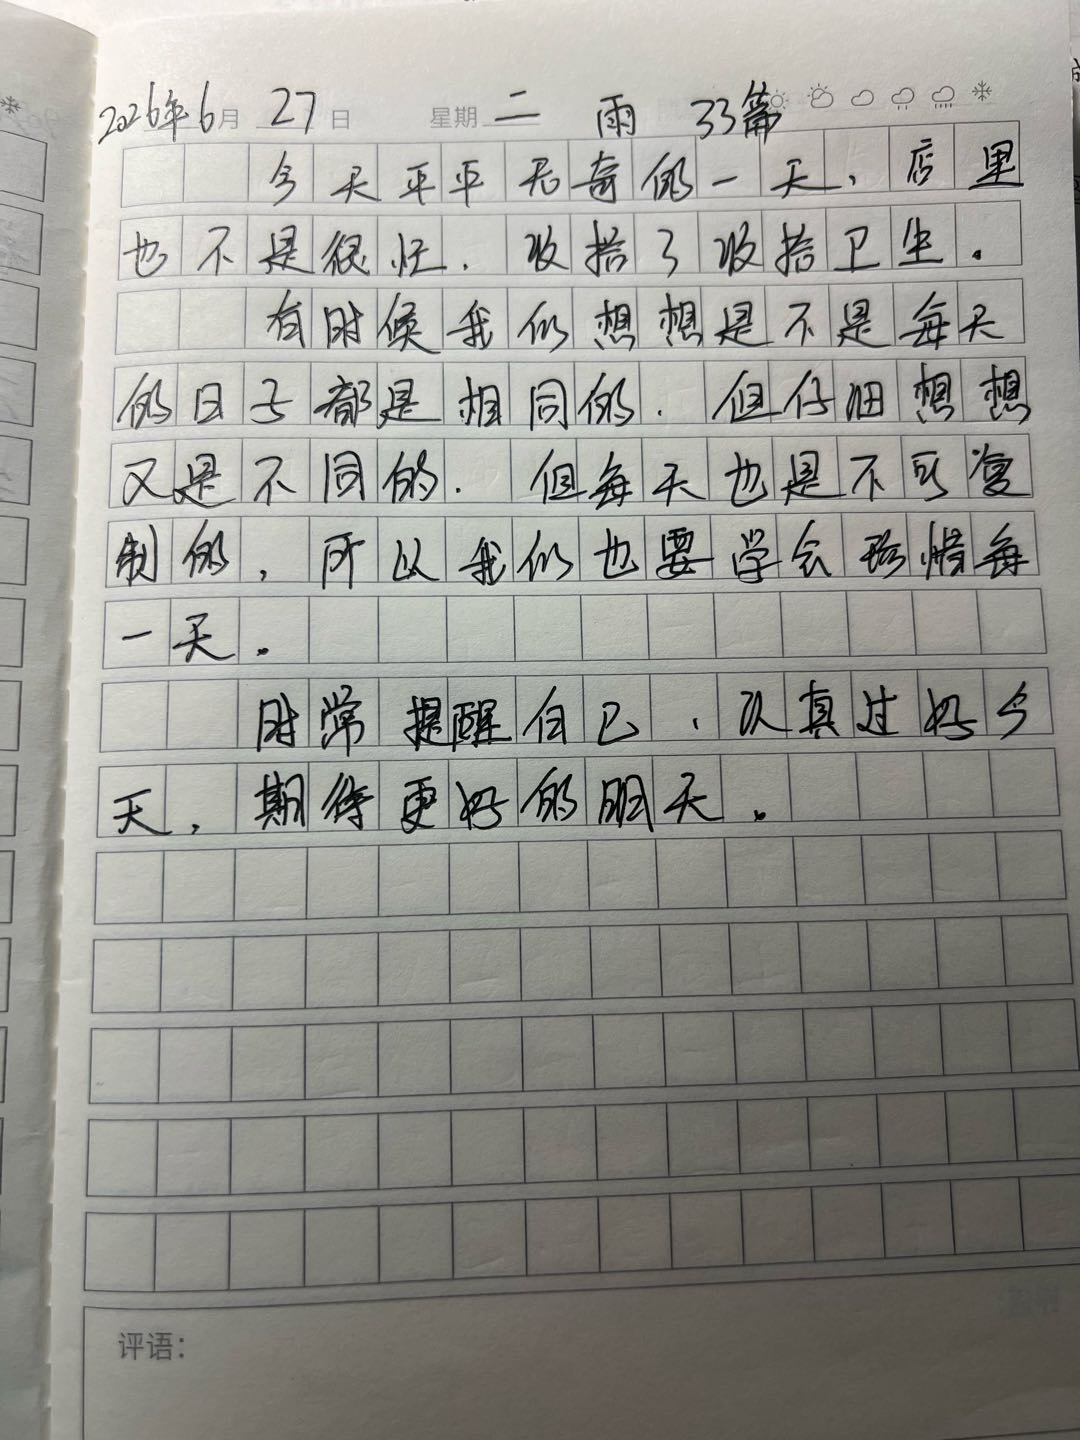 2026年6月27日 星期二 雨 33篇
今天平平无奇的一天，店里
也不是很忙．收拾了收拾卫生。
有时候我们想想是不是每天
的日子都是相同的．但仔细想想
又是不同的．但每天也是不可复
制的，所以我们也要学会珍惜每
一天。
时常提醒自己，认真过好今
天，期待更好的明天。
评语：